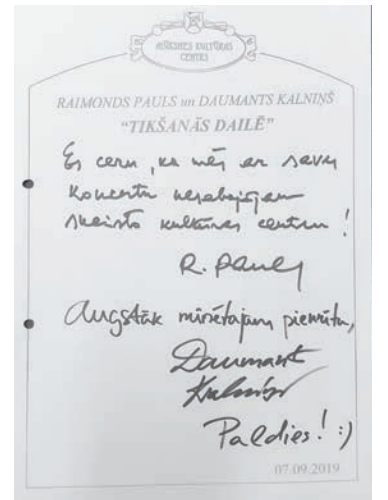 MŪKSNES KULTŪRAS
CENTRS
RAIMONDS PAULS un DAUMANTS KALNIŅŠ
“TIKŠANĀS DAILĒ”
Es ceru, ka mēs ar savu
koncertu nesabojājam
skaisto kultūras centru!
R. Pauls
Augstāk minētajam piekrītu,
Daumants
Kalniņš
Paldies! :)
07.09.2019